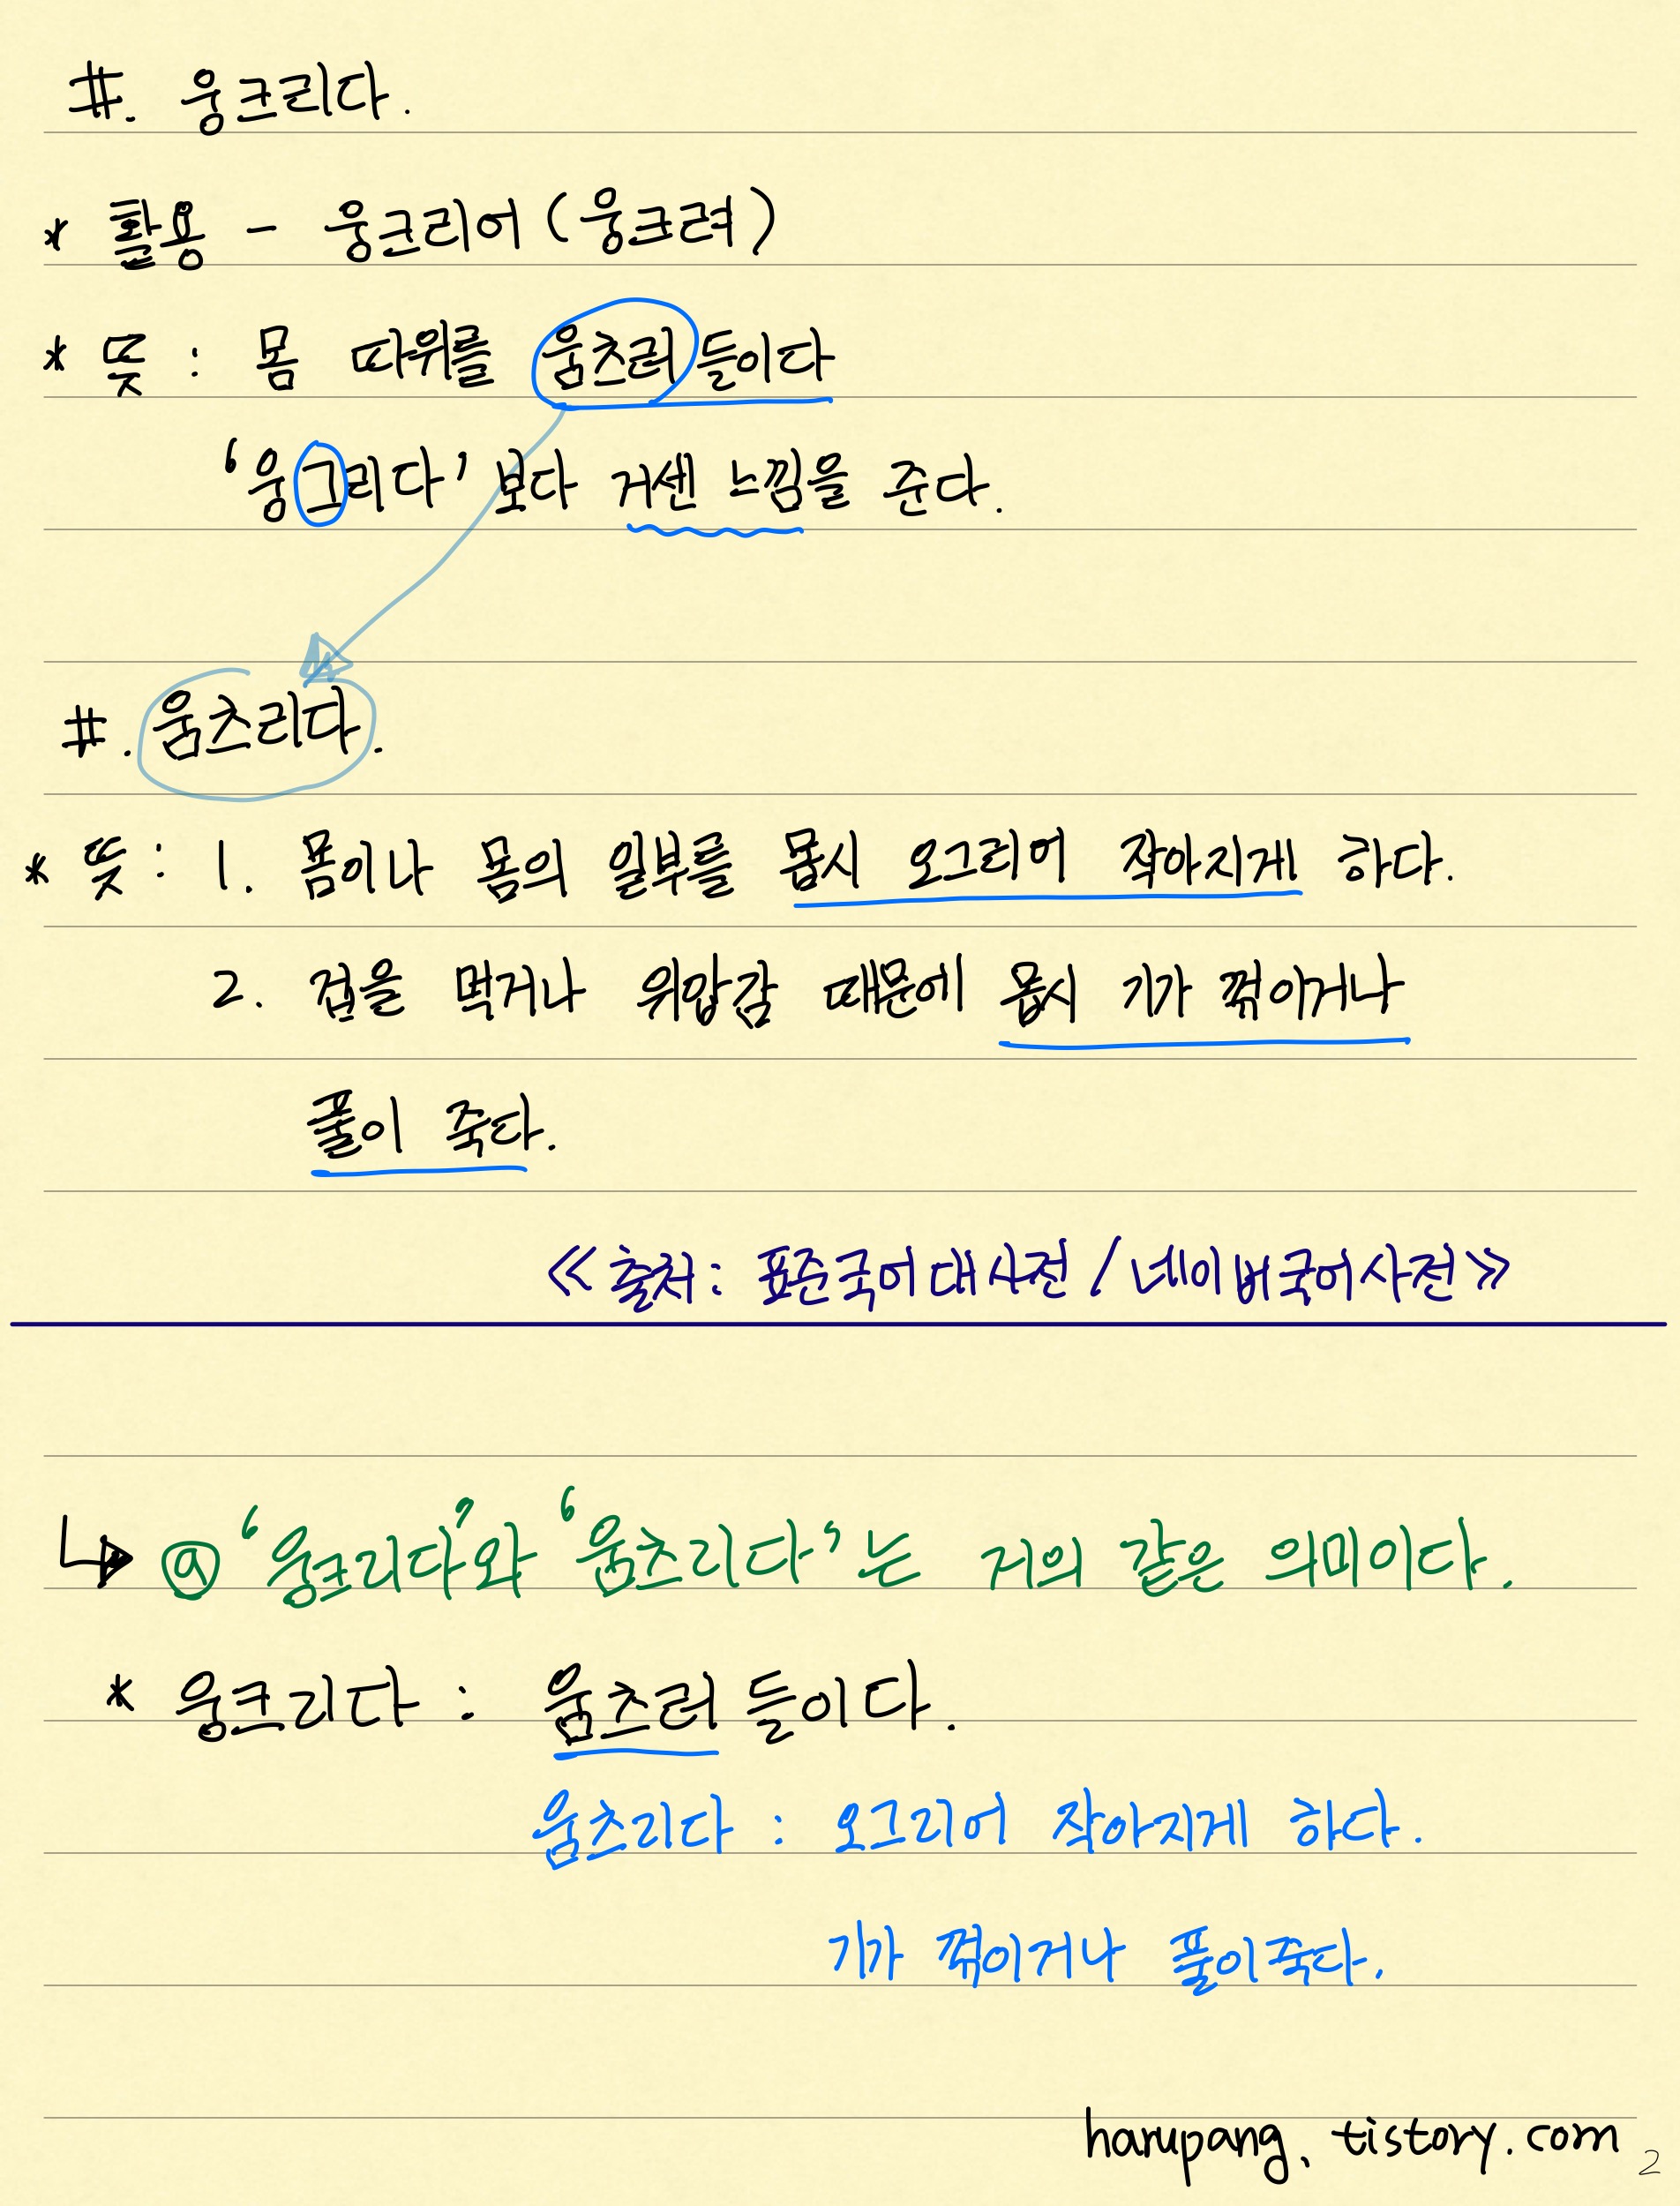 #. 웅크리다.
* 활용 - 웅크리어 (웅크려)
* 뜻 : 몸 따위를 움츠러들이다
‘웅그리다’ 보다 거센 느낌을 준다.
#. 움츠리다.
* 뜻 : 1. 몸이나 몸의 일부를 몹시 오그리어 작아지게 하다.
2. 겁을 먹거나 위압감 때문에 몹시 기가 꺾이거나
풀이 죽다.
≪출처 : 표준국어대사전 / 네이버국어사전≫
↳ ⓐ ‘웅크리다’와 ‘움츠리다’는 거의 같은 의미이다.
* 웅크리다 : 움츠러들이다.
움츠리다 : 오그리어 작아지게 하다.
기가 꺾이거나 풀이죽다.
harupang. tistory. com
2